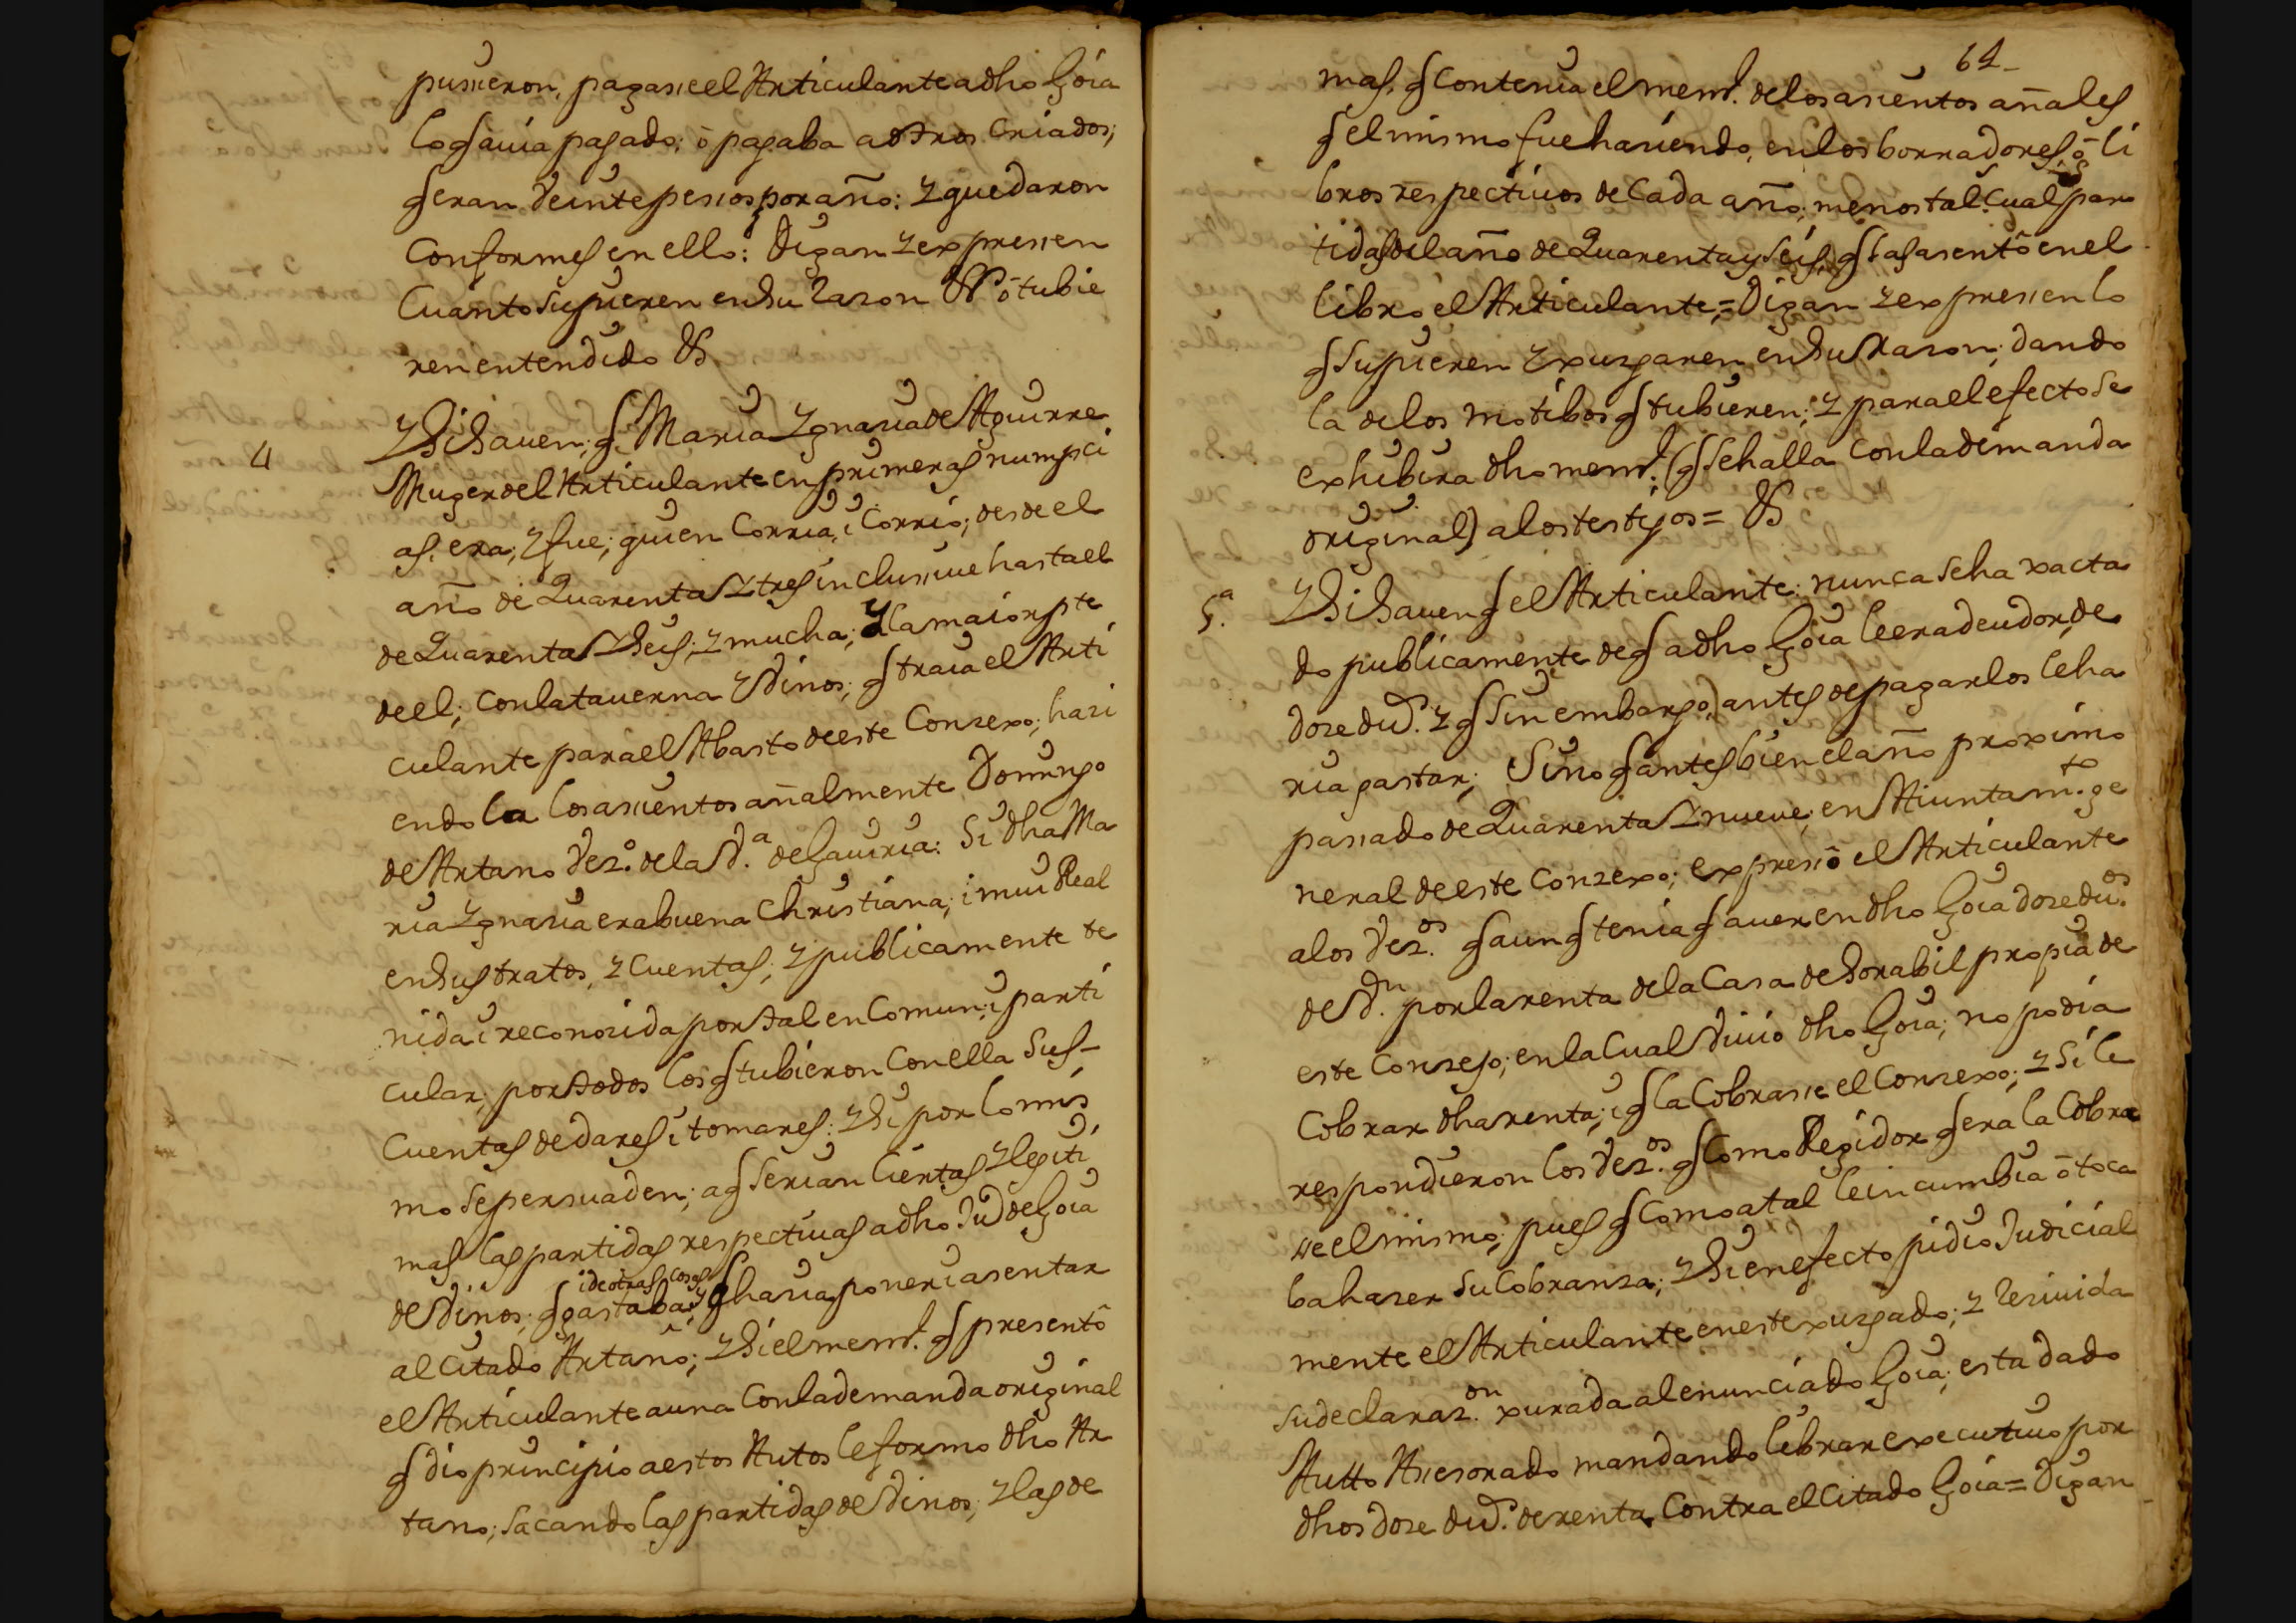 pusieron, pagase el Articulante a dho Goia
lo q auia pagado; ò pagaba a otros Criados;
q eran Veinte pesos por año: Y quedaron
Conformes en ello: Digan y expresen
Cuanto supieren en su razon ò tubie
ren entendido &
4
Y Si Sauen; q Maria Ygnacia de Aguirre
Muger del Articulante en primeras numpci
as. era; y fue; quien Corria, i Corrió; desde el
año de Quarenta y tres inclusiue hasta el
de Quarenta y Seis; y mucha; Y la maior pte
de el; con la tauerna y Vinos; q traia el Arti
culante para el Abasto de este Conzexo; hazi
endo la los asientos añalmente Domingo
de Artano Vezo. de la Va. de Gauiria: Si dha Ma
ria Ygnacia era buena Christiana; i mui Real
en sus tratos, y Cuentas; y publicamente te
nida i reconozida por tal en Comun; i parti
cular; por todos los q tubieron Con ella Sus-
Cuentas de dares i tomares: Y Si por lo mis
mo se persuaden; a q serian Ciertas y legiti
mas las partidas respectiuas a dho Ju de Goia
i de otras cosas
de Vinos; q gastaba; y q hazia poner i asentar
al Citado Artano; Y Si el meml. q presentô
el Articulante a una Con la demanda original
q dio principio a estos Autos le formo dho Ar
tano; Sacando las partidas de Vinos; y las de
64
mas, q Contenia el meml. de los asientos añales
q el mismo fue haziendo, en los borradores, ô li
bros respectiuos de Cada año; menos tal Cual par
tidas del año de Quarenta y Seis, q las asentô en el
libro el Articulante; = Digan y expresen lo
q Supieren y xuzgaren en Su Razon; dando
la de los motibos q tubieren; y para el efecto Se
exhibira dho meml. (q Se halla Con la demanda
original) a los testigos = &
5.a
Y Si Sauen q el Articulante: nunca Se ha xacta
do publicamente de q a dho Goia le era deudor, de
doze dus. y q Sin embargo, antes de pagarlos le ha
ria gastar; Sino q antes bien el año proximo
pasado de Quarenta y nueue; en Aiuntamto. ge
neral de este Conzexo; expresô el Articulante
a los Vezos. q aun q tenia q auer en dho Goia doze duos.
de Vn. por la renta de la Casa de Sorabil propia de
este Conzejo; en la Cual Viuio dho Goia; no podia
Cobrar dha renta; i q la Cobrase el Conzexo; y Si le
respondieron los Vezos. q Como Regidor q era la Cobra
se el mismo; pues q Como a tal le incumbia ô toca
ba hazer Su Cobranza; Y Si en efecto pidio Judicial
mente el Articulante en este xuzgado; y rezivida
Su declarazon. xurada al enunciado Goia; esta dado
Autto Asesorado mandando librar executiuo por
dhos doze dus. de renta Contra el Citado Goia = Digan